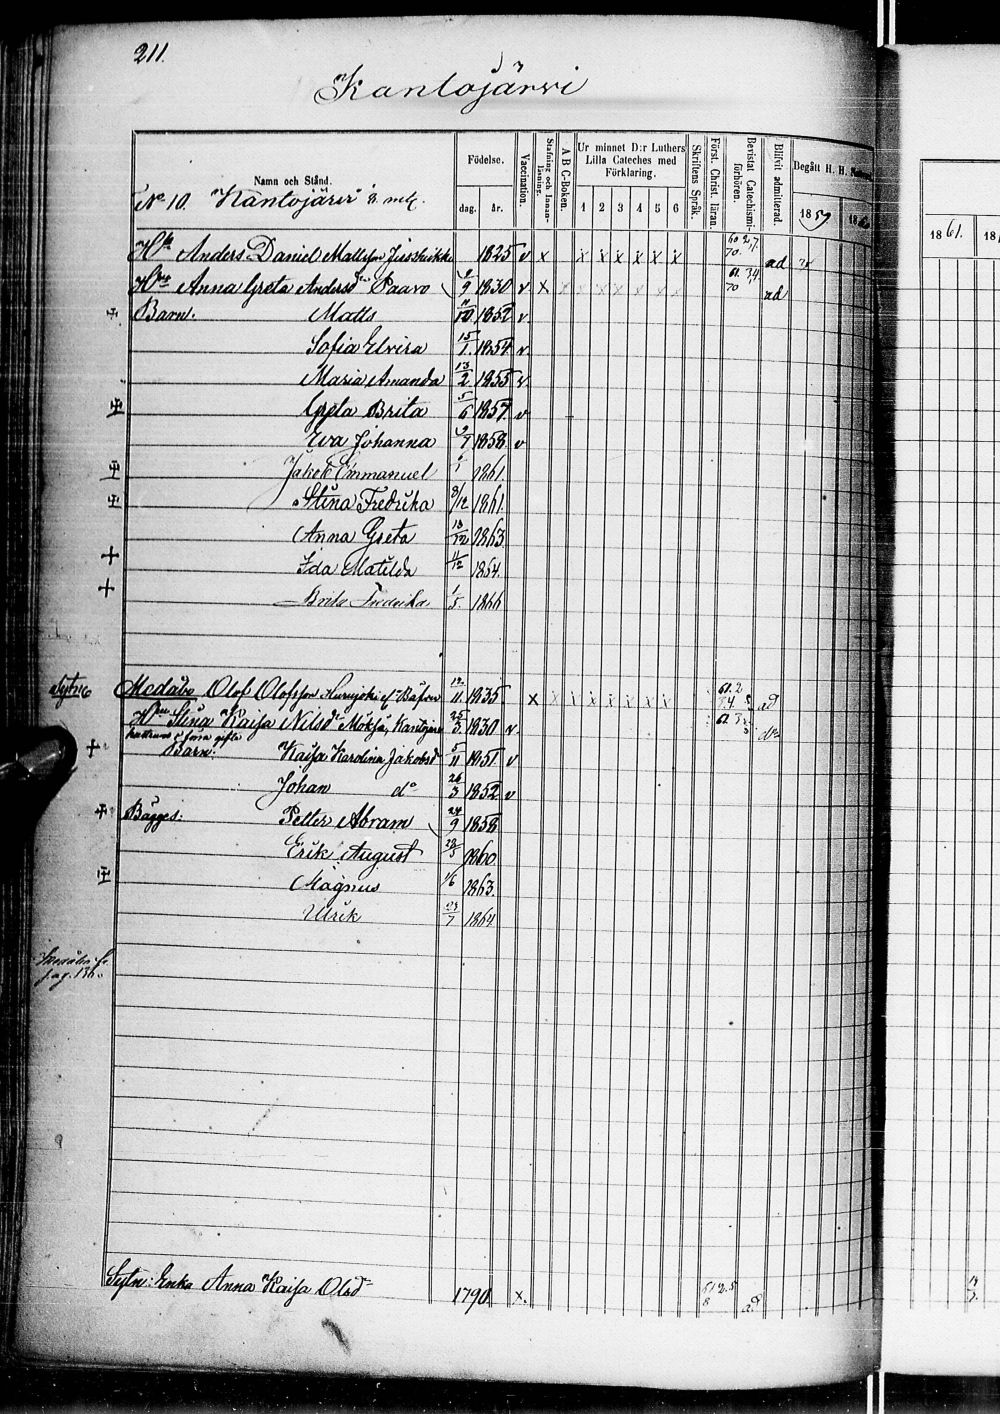 211.
Kantojärvi
Namn och Stånd.
Födelse.
dag. år.
Vaccination.
Stafning och Innanläsning.
A B C-Boken.
Ur minnet D:r Luthers Lilla Cateches med Förklaring.
1 2 3 4 5 6
Skriftens Språk.
Först. Christ. läran.
Bevistat Catechismiförhören.
Blifvit admitterad.
Begått H. H.
1859 18
1861. 18
No 10. Kantojärvi
Anders Daniel Mattsson 1825 v x x x x x x x ad
Anna Greta Andersdr Paavo 9 1830 v x x x x x x x x ad
Barn: Matts 11/10 1852 v
Sofia Elvira 15/1 1854 v
Maria Amanda 13/2 1855 v
Greta Brita 5/6 1857 v
Eva Johanna 9/7 1858 v
Jakob Emmanuel 6/1 1861
Stina Fredrika 8/12 1861
Anna Greta 13/12 1863
Ida Matilda 11/12 1864.
Brita Fredrika 1/5 1866
Olof Olofsson 12/11 1835 x x x x x x x x ad
Stina Kaisa Nilsdr 25/3 1830 v
Barn: Kaisa Karolina Jakobsd 5/11 1851 v
Johan do 26/3 1852 v
Bägges: Petter Abram 24/9 1858
Erik August 28/5 1860
Magnus 1/6 1863.
Ulrik 23/7 1864
pag. 136.
Sytn: Enka Anna Kaisa Olsdr 1790 x. ad